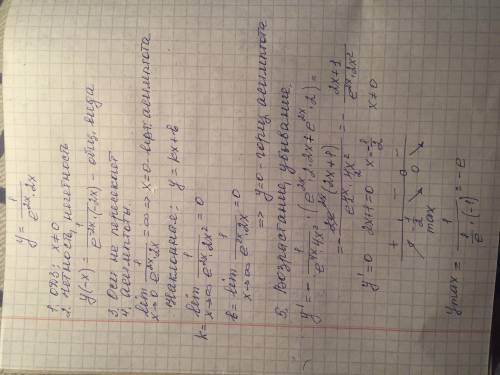 y = 1/(e^{2x}·2x)
1. ОДЗ: x≠0
2. Четность, нечетность
y(-x) = 1/(e^{-2x}·(-2x)) общ. вида
3. Оси не пересекает
4. Асимптоты.
lim x→0 1/(e^{2x}·2x) = ∞ ⇒ x=0 - верт. асимптота
Наклонная: y = kx+b
k = lim x→∞ 1/(e^{2x}·2x²) = 0
b = lim x→∞ 1/(e^{2x}·2x) = 0
⇒ y=0 - гориз. асимптота
5. Возрастание, убывание.
y' = - 1/(e^{4x}·4x²) (e^{2x}·2·2x + e^{2x}·2) =
= - 2e^{2x}(2x+1)/(e^{4x}·4x²) = - (2x+1)/(e^{2x}·2x²)
y'=0 2x+1=0 x=-1/2 x≠0
+ - -
-1/2 0
max
y max = 1/(1/e·(-1)) = -e